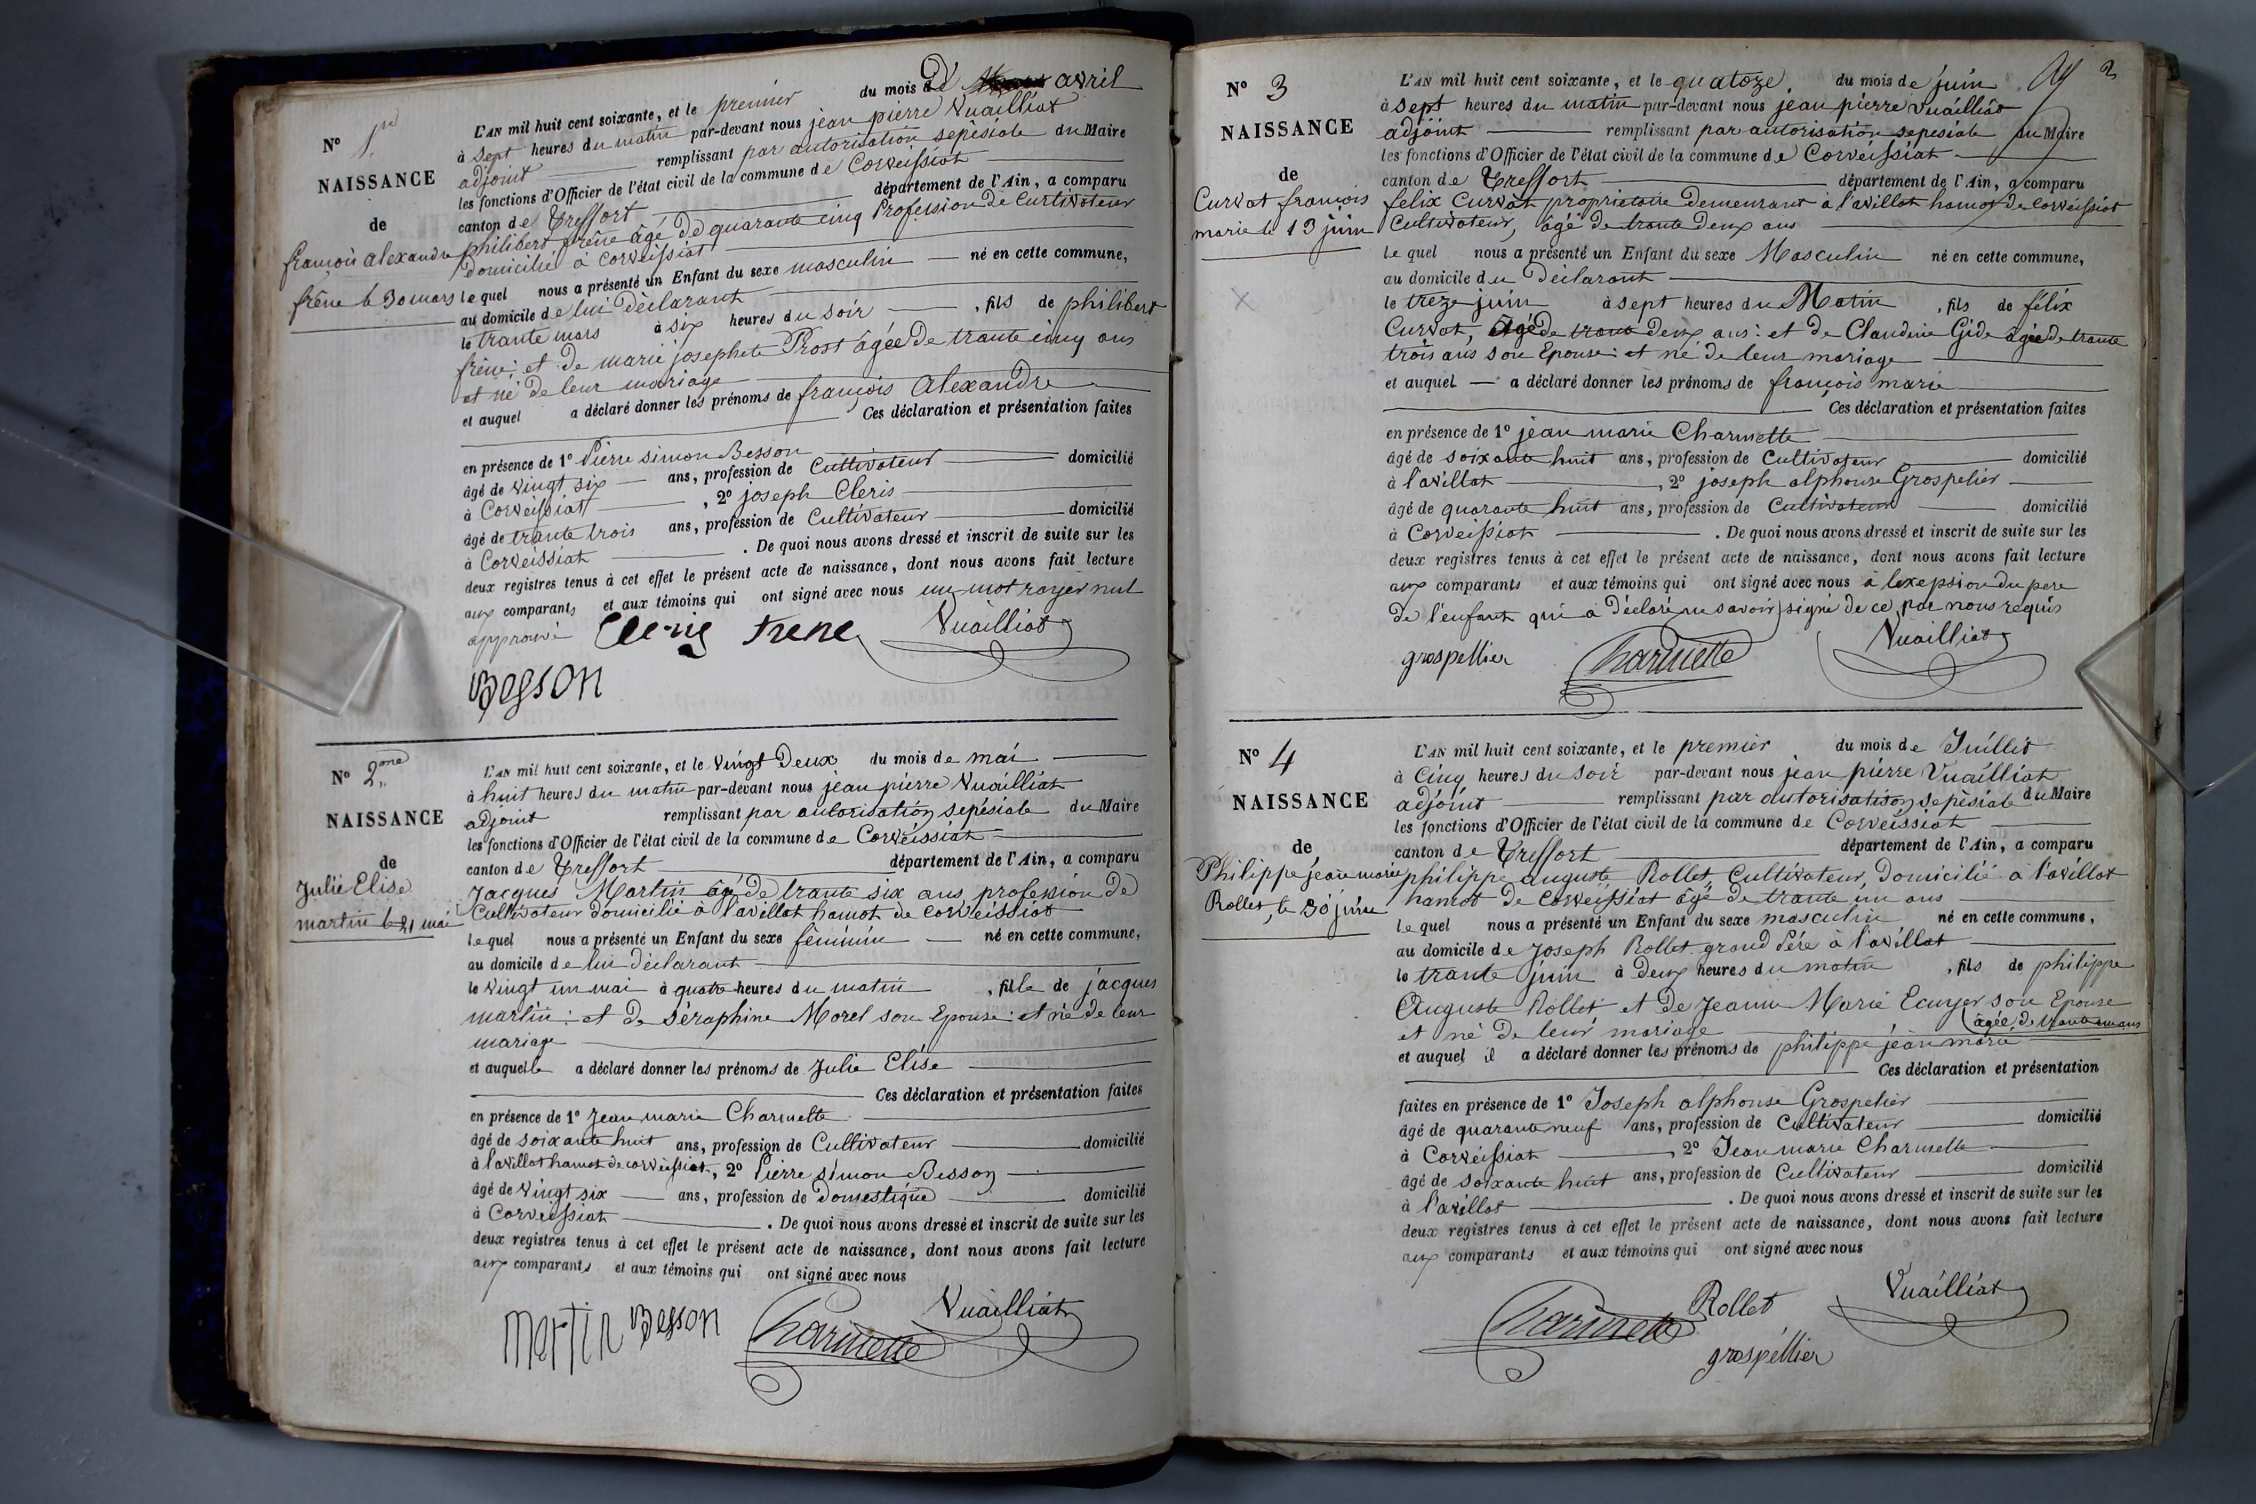 N° 1er
NAISSANCE
de
françois alexandre
frêne le 30 mars
L'AN mil huit cent soixante, et le premier du mois d' avril
à sept heures du matin par-devant nous jean pierre Vuailliat
adjoint remplissant par autorisation sepésiale du Maire
les fonctions d'Officier de l'état civil de la commune de Corveissiat
canton de Treffort département de l'Ain, a comparu
philibert frêne âgé de quarante cinq Profession de Curtivateur
domicilié à Corveissiat
lequel nous a présenté un Enfant du sexe masculin né en cette commune,
au domicile de lui déclarant
le trante mars à six heures du soir , fils de philibert
frêne: et de marie josephete Prost âgée de trante cinq ans
et né de leur mariage
et auquel a déclaré donner les prénoms de françois Alexandre
Ces déclaration et présentation faites
en présence de 1° Pierre simon Besson
âgé de vingt six ans, profession de Cultivateur domicilié
à Corveissiat , 2° joseph Cleris
âgé de trante trois ans, profession de Cultivateur domicilié
à Corveissiat . De quoi nous avons dressé et inscrit de suite sur les
deux registres tenus à cet effet le présent acte de naissance, dont nous avons fait lecture
aux comparants et aux témoins qui ont signé avec nous un mot rayer nul
approuvé Cleris frene Vuailliat
Besson
N° 2eme
NAISSANCE
de
Julie Elise
martin le 21 mai
L'AN mil huit cent soixante, et le vingt Deux du mois de mai
à huit heures du matin par-devant nous jean pierre Vuailliat
adjoint remplissant par autorisation sepésiale du Maire
les fonctions d'Officier de l'état civil de la commune de Corveissiat
canton de Treffort département de l'Ain, a comparu
Jacques Martin âgé de trante six ans, profession de
Cultivateur domicilié à l'avillat hamot de corveissiat
lequel nous a présenté un Enfant du sexe féminin né en cette commune,
au domicile de lui déclarant
le vingt un mai à quatre heures du matin , fille de jacques
martin: et de séraphine Morel son Epouse: et né de leur
mariage
et auquelle a déclaré donner les prénoms de Julie Elise
Ces déclaration et présentation faites
en présence de 1° Jean marie Charmette
âgé de soixante huit ans, profession de Cultivateur domicilié
à l'avillat hamot de corveissiat, 2° Pierre simon Besson
âgé de vingt six ans, profession de Domestique domicilié
à Corveissiat . De quoi nous avons dressé et inscrit de suite sur les
deux registres tenus à cet effet le présent acte de naissance, dont nous avons fait lecture
aux comparants et aux témoins qui ont signé avec nous
martin Besson Charmette Vuailliat
2
N° 3
NAISSANCE
de
Curvat françois
marie le 13 juin
L'AN mil huit cent soixante, et le quatoze du mois de juin
à sept heures du matin par-devant nous jean pierre Vuailliat
adjoint remplissant par autorisation sepesiale du Maire
les fonctions d'Officier de l'état civil de la commune de Corveissiat
canton de Treffort département de l'Ain, a comparu
felix Curvat proprietaire demeurant a l'avillat hamot de Corveissiat
Cultivateur, âgé de trante Deux ans
lequel nous a présenté un Enfant du sexe Masculin né en cette commune,
au domicile du Déclarant
le treze juin à sept heures du Matin , fils de félix
Curvat, âgé de trante deux ans: et de Claudine Gide âgée de trante
trois ans son Epouse: et né de leur mariage
et auquel a déclaré donner les prénoms de françois marie
Ces déclaration et présentation faites
en présence de 1° jean marie Charmette
âgé de soixante huit ans, profession de Cultivateur domicilié
à l'avillat , 2° joseph alphonse Grospelier
âgé de quarante huit ans, profession de Cultivateur domicilié
à Corveissiat . De quoi nous avons dressé et inscrit de suite sur les
deux registres tenus à cet effet le présent acte de naissance, dont nous avons fait lecture
aux comparants et aux témoins qui ont signé avec nous à lexepsion du pere
de l'enfant qui a déclaré ne savoir signé de ce par nous requis
grospellier Charmette Vuailliat
N° 4
NAISSANCE
de
Philippe jean marie
Rollet, le 30 juin
L'AN mil huit cent soixante, et le premier du mois de Juillet
à Cinq heures du soir par-devant nous jean pierre Vuailliat
adjoint remplissant par autorisation sepésiale du Maire
les fonctions d'Officier de l'état civil de la commune de Corveissiat
canton de Treffort département de l'Ain, a comparu
philippe auguste Rollet Cultivateur, Domicilié a l'avillat
hamot de Corveissiat âgé de trante un ans
lequel nous a présenté un Enfant du sexe masculin né en cette commune,
au domicile de Joseph Rollet grand Pére à l'avillat
le trante juin à Deux heures du matin , fils de philippe
Auguste Rollet et de Jeanne Marie Ecuyer son Epouse
et né de leur mariage (âgée de trante un ans
et auquel il a déclaré donner les prénoms de philippe jean marie
Ces déclaration et présentation
faites en présence de 1° Joseph alphonse Grospelier
âgé de quarante neuf ans, profession de Cultivateur domicilié
à Corveissiat , 2° Jean marie Charmette
âgé de soixante huit ans, profession de Cultivateur domicilié
à l'avillat . De quoi nous avons dressé et inscrit de suite sur les
deux registres tenus à cet effet le présent acte de naissance, dont nous avons fait lecture
aux comparants et aux témoins qui ont signé avec nous
Charmette Rollet Vuailliat
grospéllier